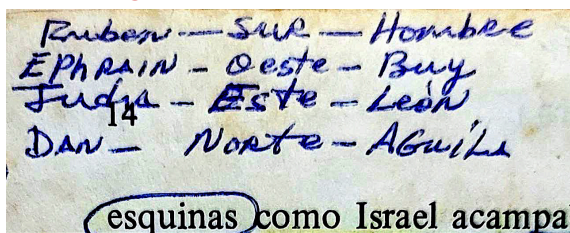 Ruben — SUR — Hombre
EPhRAIN - Oeste - Buy
Judá - Este - León
14
DAN - Norte - AGuíLA
esquinas como Israel acampa